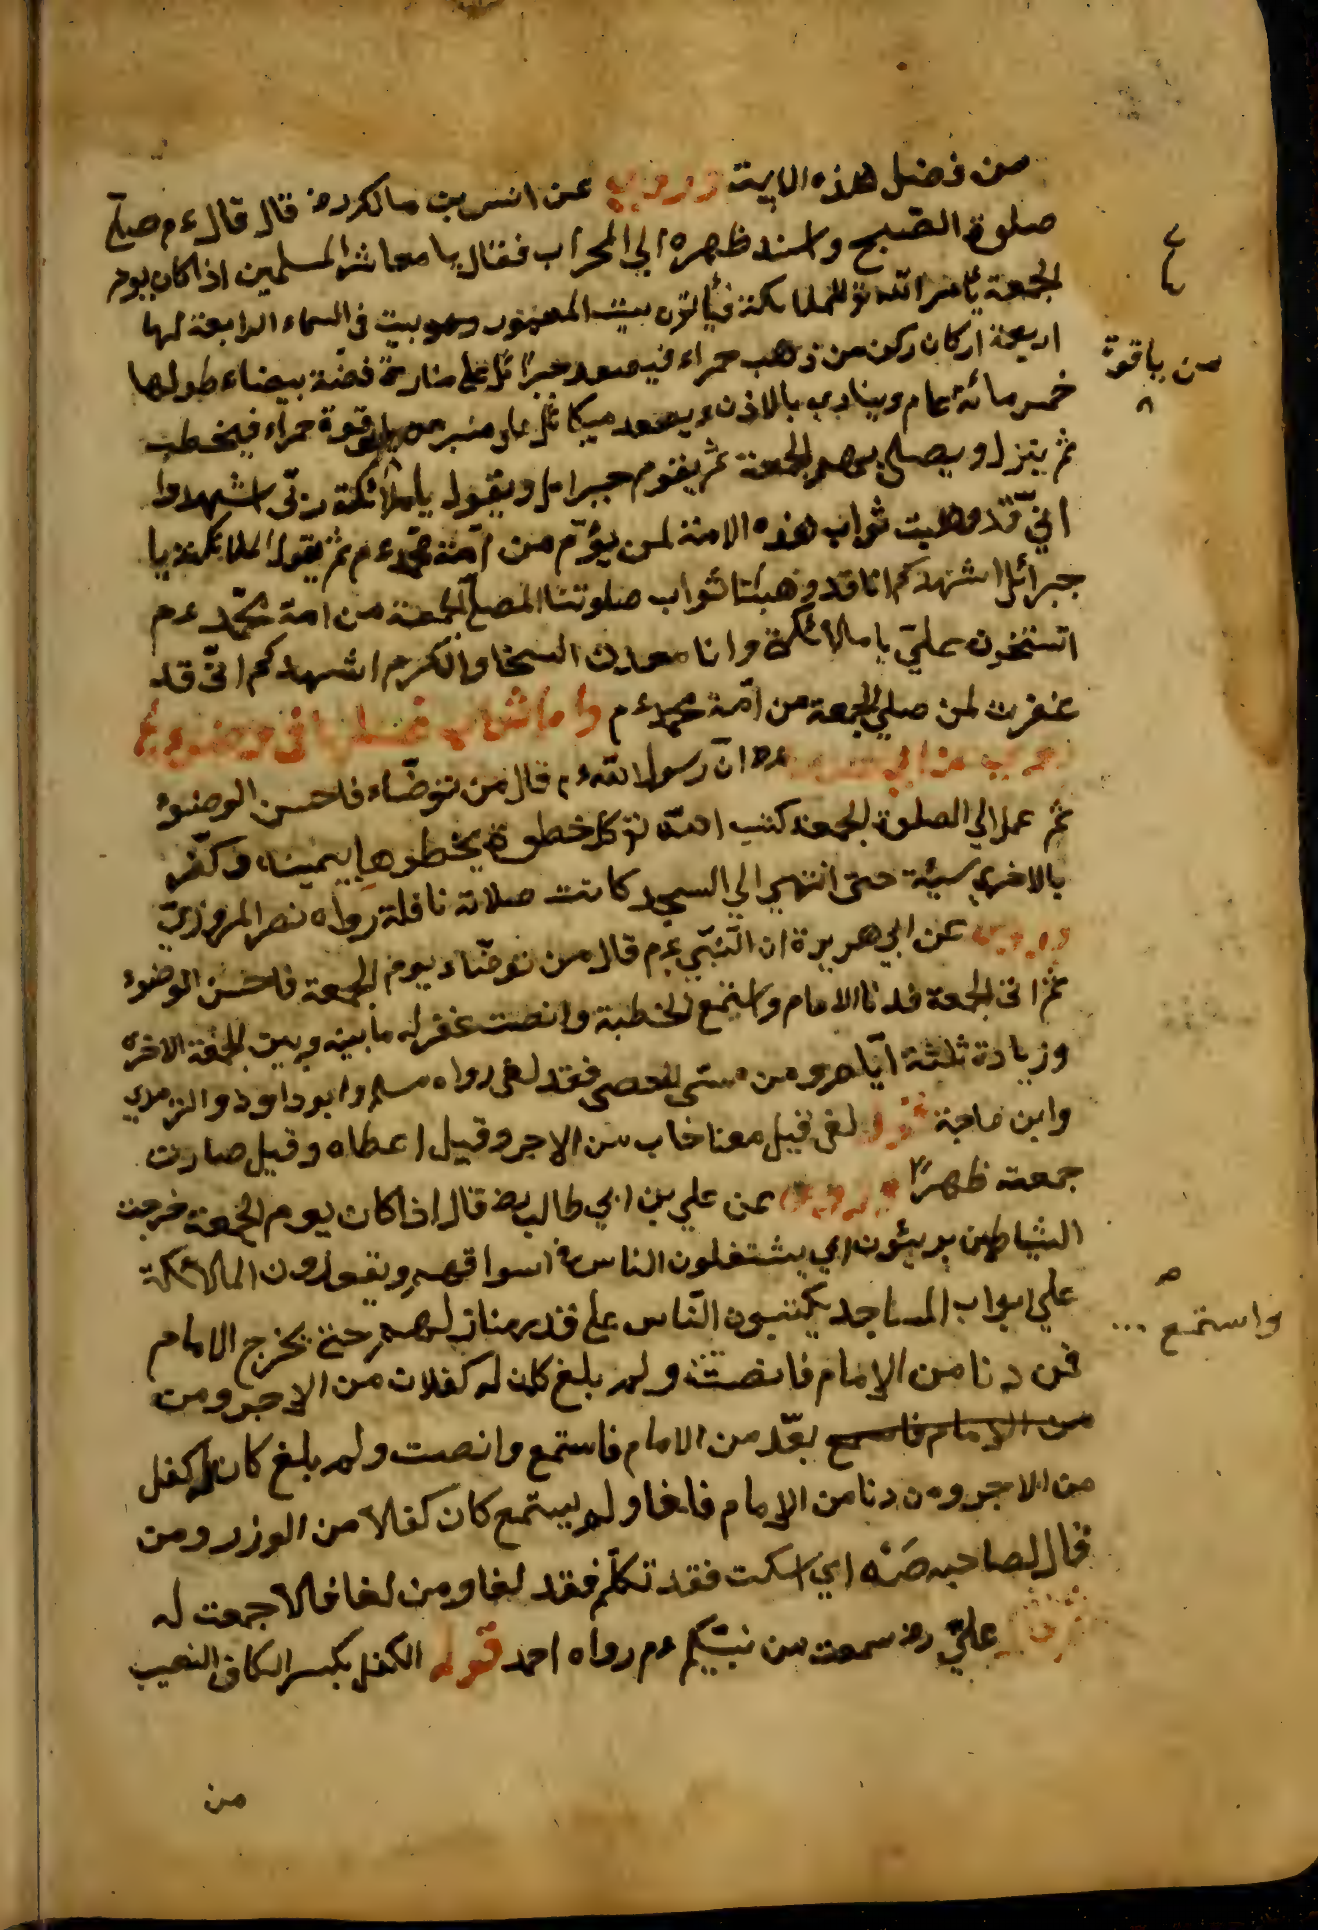 من فضل هذه الاية وروي عن انس بن مالك رض قال قال ءم صلي
صلوة الصبح واسند ظهره الي المحراب فقال يا معاشر المسلمين اذا كان يوم
الجمعة يأمر الله تع للملائكة فيأتون بيت المعمور وهو بيت في السماء الرابعة لها
اربعة اركان ركن من ذهب حمراء فيصعد جبرائل علي منارة فضة بيضاء طولها
من ياقوة
خمسمائة عام وينادي بالاذن ويصعد ميكائل علي منبر من ياقوة حمراء فيخطب
ثم ينزل ويصلي بهم الجمعة ثم يقوم جبرائل ويقول يا ملائكة ربي اشهدوا
اني قد وهبت ثواب هذه الامة لمن يؤم من امة محمد ءم ثم يقول الملائكة يا
جبرائل اشهدكم انا قد وهبنا ثواب صلوتنا المصلي الجمعة من امة محمد ءم
اتستخون علي يا ملائكة وانا معدن السخا والكرم اشهدكم اني قد
غفرت لمن صلي الجمعة من امة محمد ءم واما ثواب
روي عن ابي ان رسول الله ءم قال من توضاء فاحسن الوضوء
ثم عمل الي الصلوة الجمعة كتب الله تع كل خطوة يخطوها بيمينه وكفر
بالاخري سيئة حتي انتهي الي المسجد كانت صلاته نافلة رواه نصر المروزي
وروي عن ابي هريرة ان النبي ءم قال من توضاء يوم الجمعة فاحسن الوضوء
ثم اتي الجمعة فدنا الامام واستمع الخطبة وانصت غفر له ما بينه وبين الجمعة الاخره
وزيادة ثلثة ايام ومن مس الحصي فقد لغي رواه مسلم وابو داود والترمدي
وابن ماجة قوله لغي قيل معنا خاب من الاجر وقيل اعطاه وقيل صارت
جمعته ظهرا وروي عن علي بن ابي طالب رض قال اذا كان يوم الجمعة خرجت
الشياطين يريئون اي يشتغلون الناس اسواقهم ويقعدون الملائكة
علي ابواب المساجد يكتبون الناس علي قدر منازلهم حتي يخرج الامام
واستمع
فمن دنا من الامام فانصت ولم يلغ كان له كفلان من الاجر ومن
من الامام فاسمع بعد من الامام فاستمع وانصت ولم يلغ كان له كفل
من الاجر ومن دنا من الامام فلغا ولم يستمع كان كفلا من الوزر ومن
قال لصاحبه صه اي اسكت فقد تكلم فقد لغا ومن لغا فلا جمعت له
علي رض سمعت من نبيكم ءم رواه احمد قوله الكفل بكسر الكاف النصيب
من